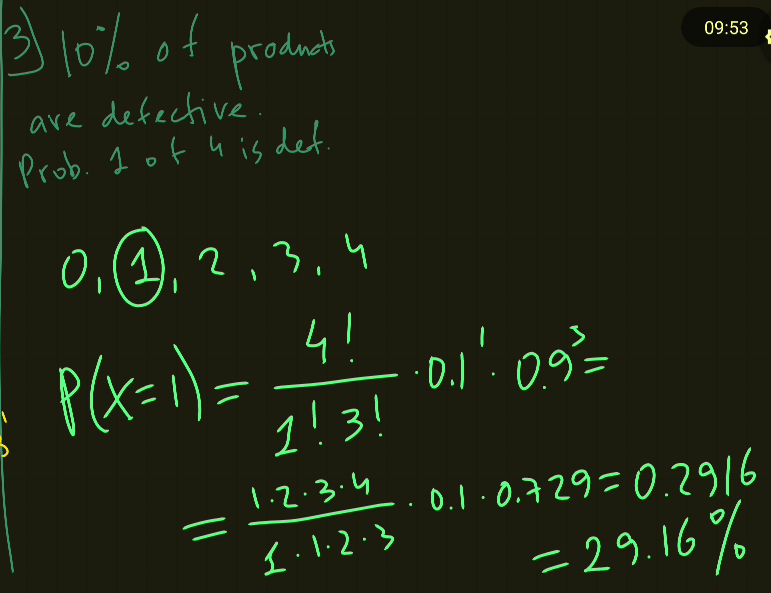 09:53
3) 10% of products
are defective.
Prob. 1 of 4 is def.
0, 1, 2, 3, 4
P(X=1) = 4! / 1! 3! · 0.1¹ · 0.9³ =
= 1·2·3·4 / 1·1·2·3 · 0.1 · 0.729 = 0.2916
= 29.16%